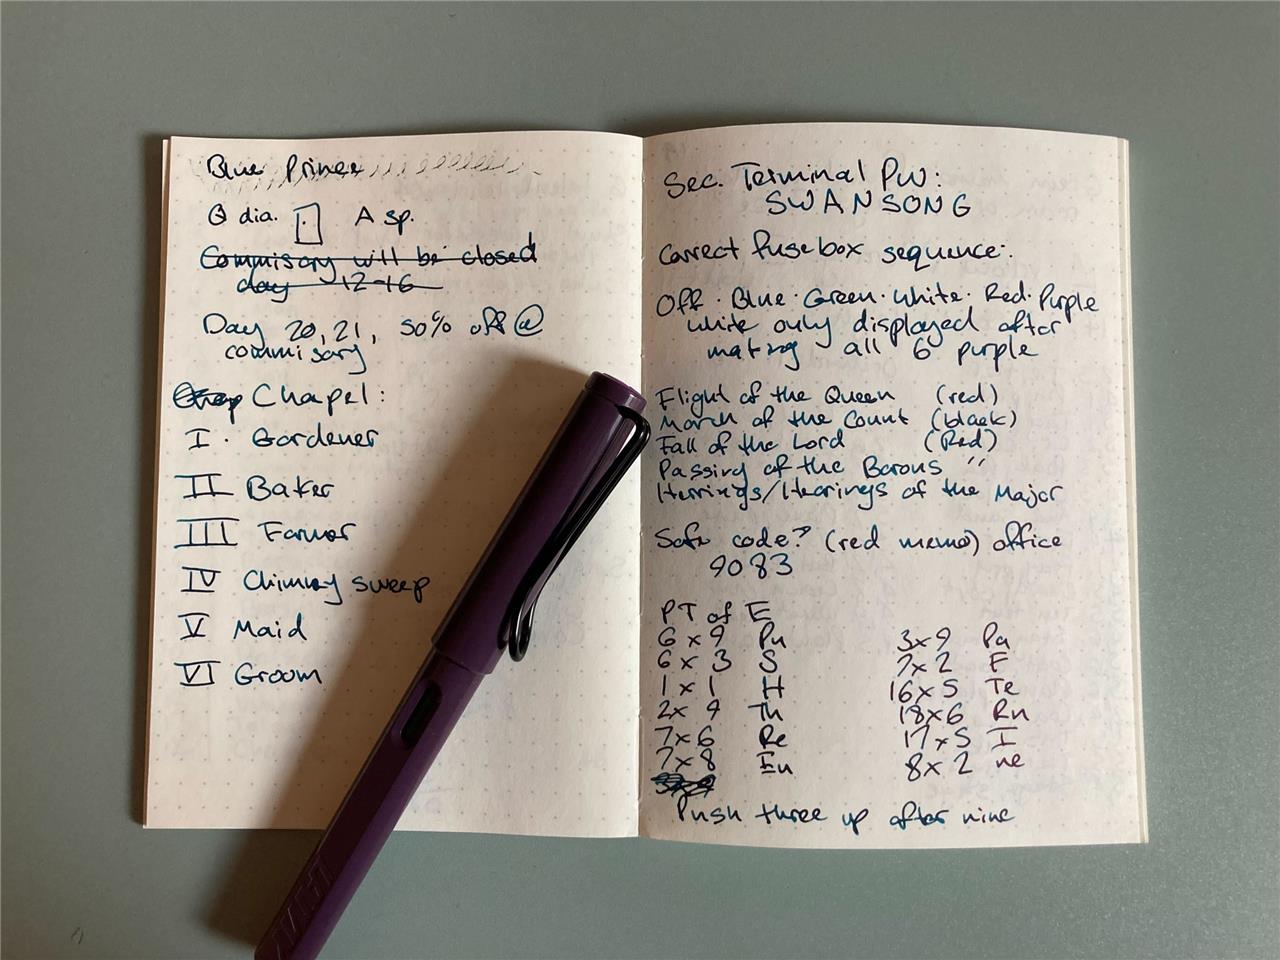 Blue Prince
dia. A sp.
Commisary will be closed
day 12-16
Day 20, 21, 50% off @
commisary
Chapel:
I. Gardener
II Baker
III Farmer
IV Chimney sweep
V Maid
VI Groom
Sec. Terminal PW:
SWANSONG
Correct fusebox sequence:
Off · Blue · Green · White · Red · Purple
white only displayed after
making all 6 purple
Flight of the Queen (red)
March of the Count (black)
Fall of the Lord (Red)
Passing of the Barons "
Herrings/Hearings of the Major
Safe code? (red memo) office
9083
PT of E
6 x 9 Pu 3x9 Pa
6 x 3 S 7x2 F
1 x 1 H 16x5 Te
2x 9 Th 18x6 Rn
7x6 Re 17x5 I
7x8 Eu 8x2 ne
Push three up after nine
LAMY